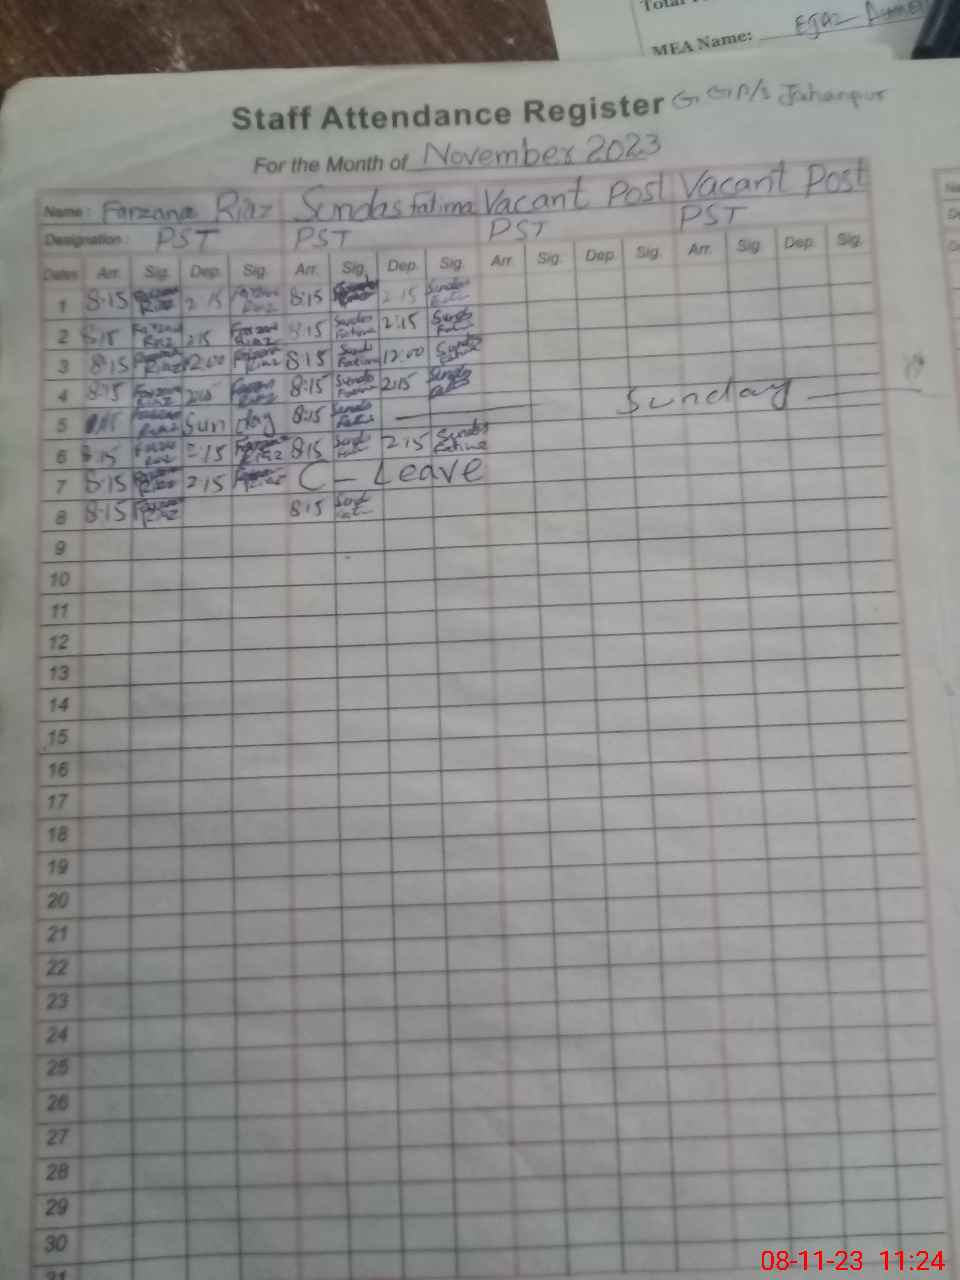 Total
MEA Name: Ejaz
Staff Attendance Register G G P/S Jahanpur
For the Month of November 2023
Name: Farzana Riaz Sundas Fatima Vacant Post Vacant Post
Designation: PST PST PST PST
Dates Arr. Sig. Dep. Sig. Arr. Sig. Dep. Sig. Arr. Sig. Dep. Sig. Arr. Sig. Dep. Sig.
1 8:15 Riaz 2:15 Riaz 8:15 2:15 Sundas
2 8:15 Farzana Riaz 2:15 Farzana Riaz 8:15 Sundas Fatima 2:15 Sundas
3 8:15 Riaz 12:00 Riaz 8:15 Fatima 12:00 Sundas Fatima
4 8:15 Farzana Riaz 2:15 Farzana Riaz 8:15 Sundas Fatima 2:15 Sundas
5 Farzana Riaz Sunday 8:15 Sundas Sunday
6 8:15 2:15 Farzana Riaz 8:15 2:15 Sundas Fatima
7 8:15 2:15 C - Leave
8 8:15 Riaz 8:15
9
10
11
12
13
14
15
16
17
18
19
20
21
22
23
24
25
26
27
28
29
30
31
08-11-23 11:24